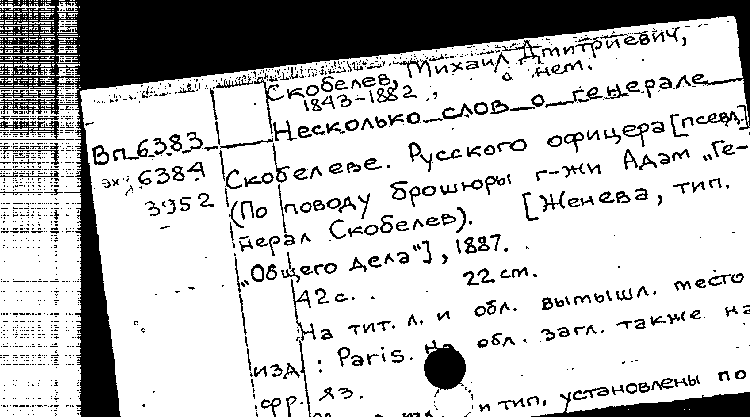 Скобелев, Михаил Дмитриевич,
1843-1882, о нем.
Вп 6383 Несколько слов о генерале
экз 6384 Скобелеве. Русского офицера [псевд.]
3952 (По поводу брошюры г-жи Адам „Ге-
нерал Скобелев). [Женева, тип.
„Общего дела"], 1887.
42 с. 22 cm.
На тит. л. и обл. вымышл. место
изд.: Paris. На обл. загл. также на
фр. яз.
и тип. установлены по